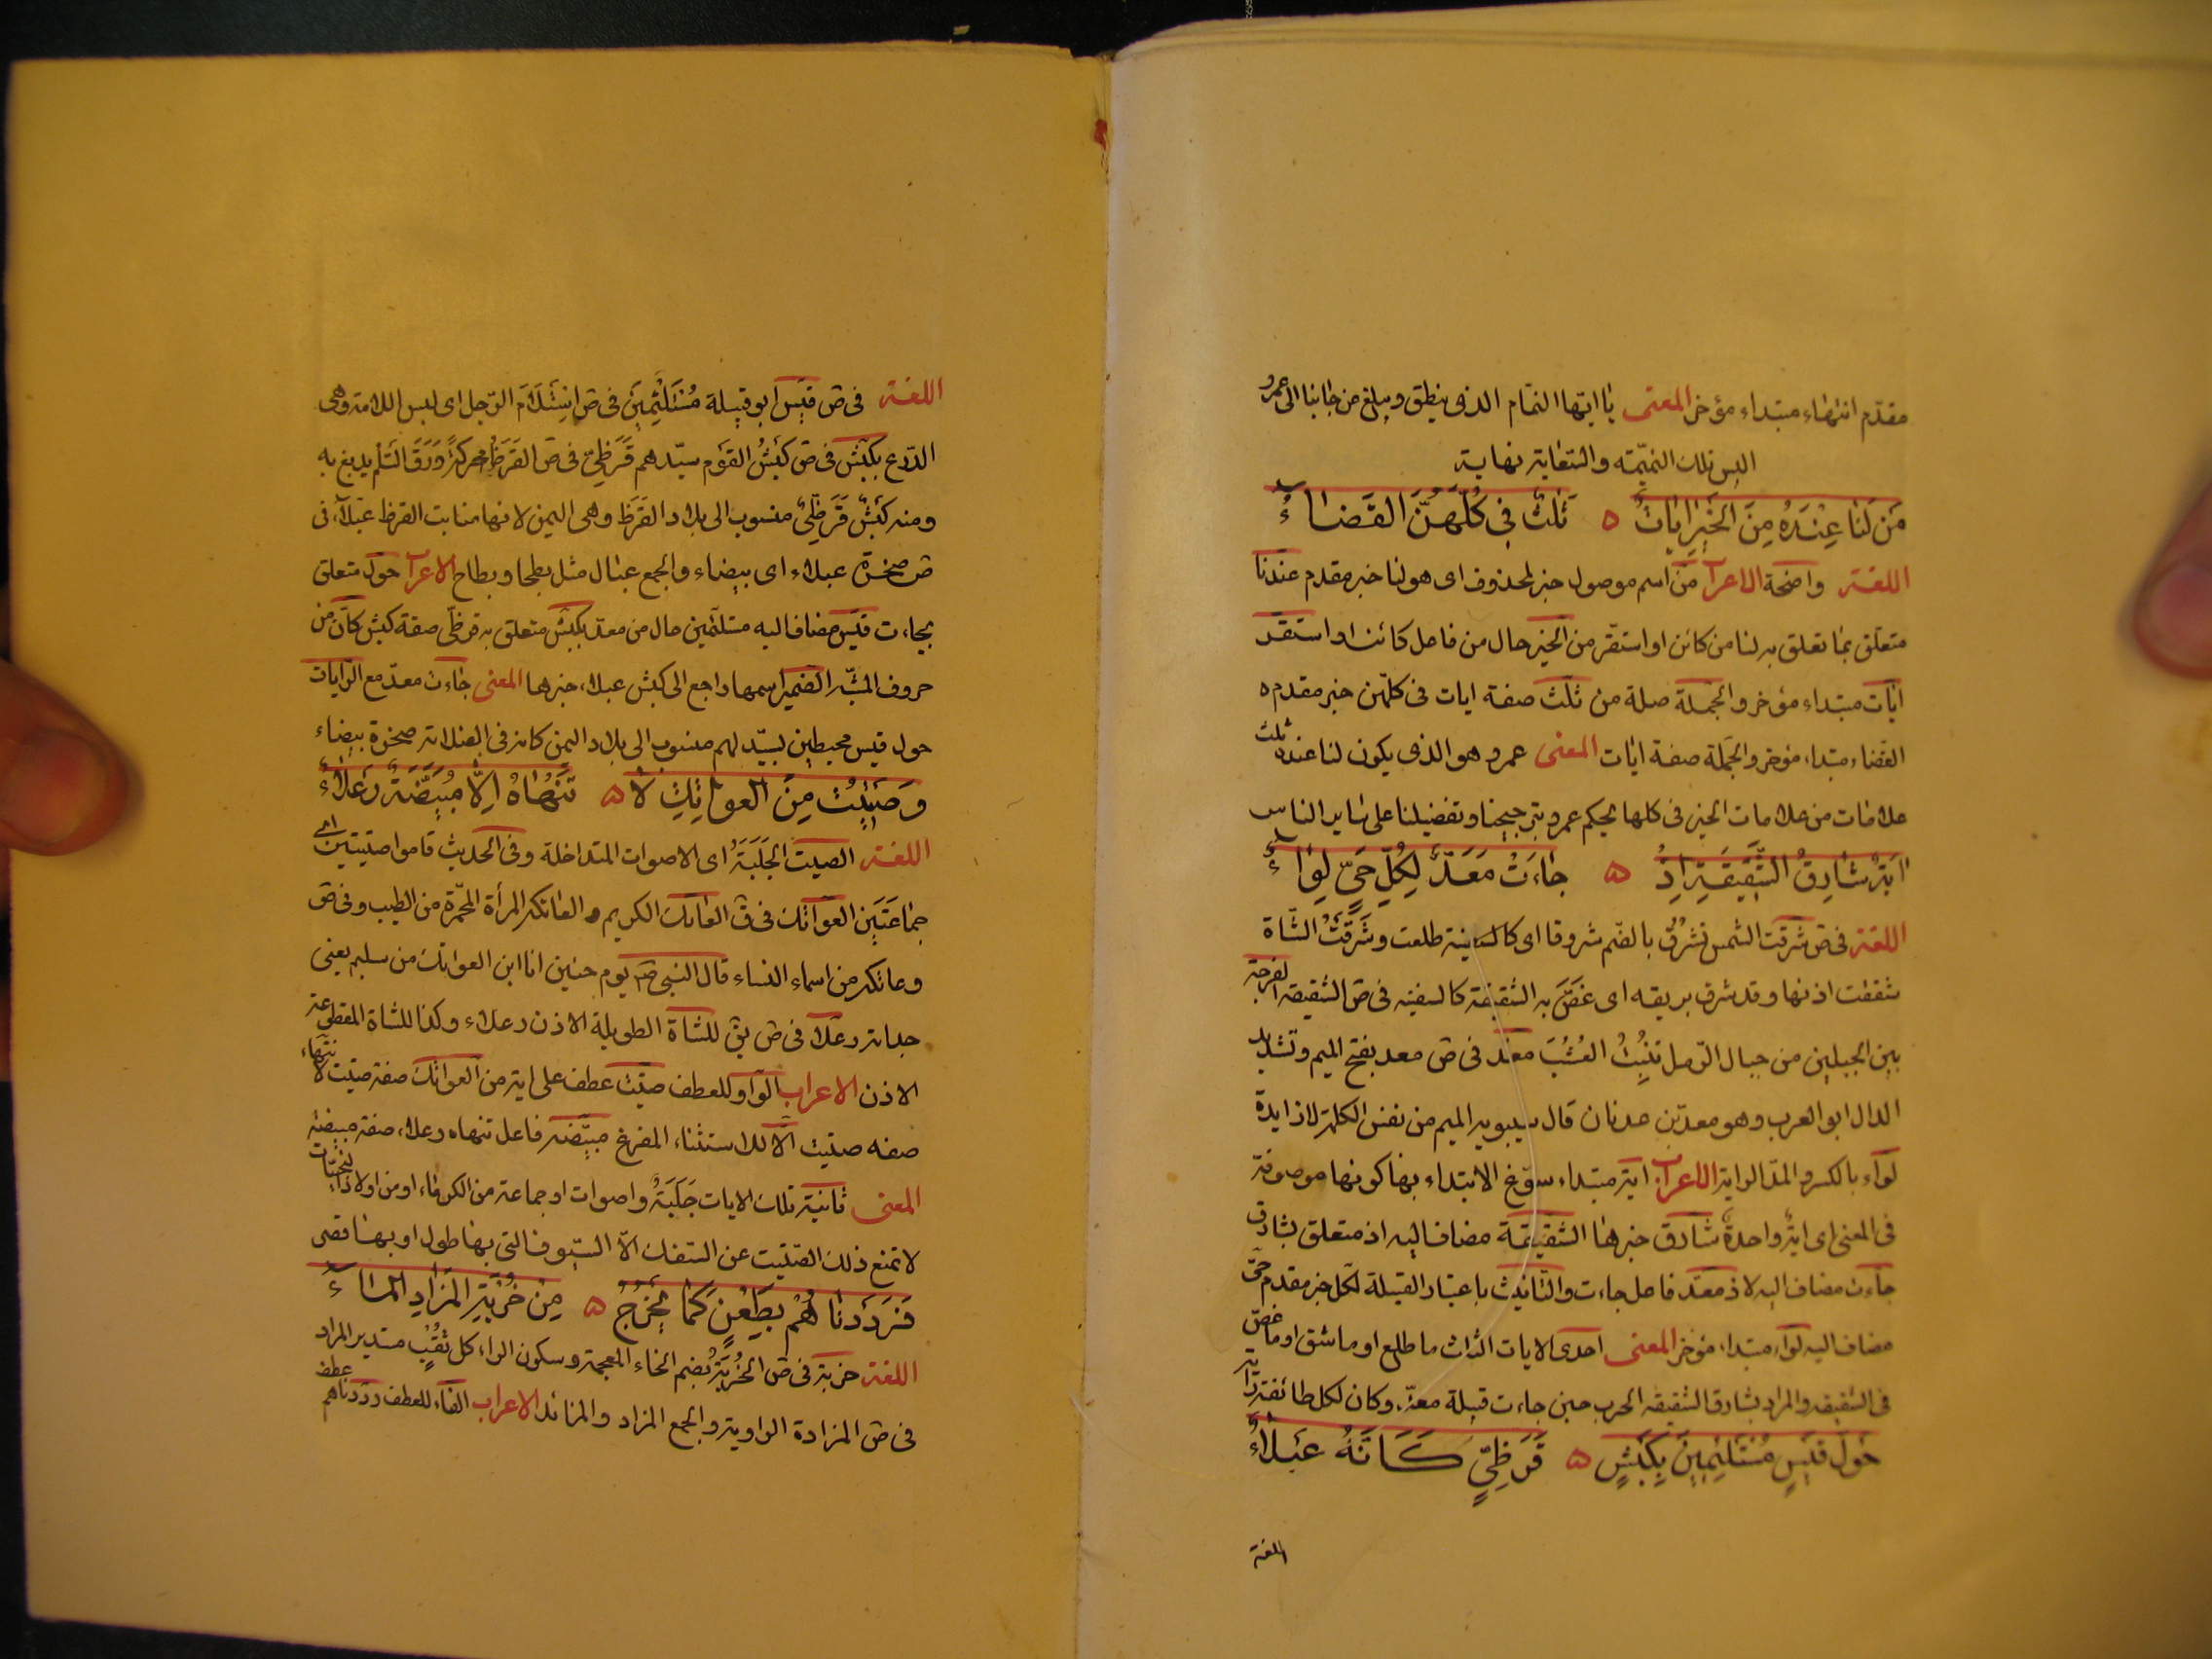 مقدّم انتهاء مبتداء مؤخر المعنى يا ايتها النمّام الذى ينطق ويبلغ من جانبنا الى عمرو
اليس لتلك النميمّة والسّعاية نهاية
مَن لَنا عِنْدَهُ مِنَ الخَيْرِ اٰيَاتٌ ۵ ثَلٰثٌ فى كُلِّهِنَّ القَضاءُ
اللغة واضحة الاعراب مَن اسم موصول خبر لمحذوف اى هو لنا خبر مقدم عندنا
متعلّق بما تعلق به لنا من كائن او استقّر من الخير حال من فاعل كائن او استقر
ايات مبتداء مؤخر والجملة صلة من ثلث صفة ايات فى كلّهن خبر مقدم
القضاء مبتداء مؤخر والجملة صفة ايات المعنى عمرو هو الذى يكون لنا عنده ثلث
علامات من علامات الخير فى كلها يحكم عمرو بترجيحنا وتفضيلنا على ساير الناس
ايَةٌ شارِقُ الشَّقِيقَةِ اِذْ ۵ جاءَتْ مَعَدٌّ لِكُلِّ حَىٍّ لِوَاءُ
اللغة فى ص شرقت الشمس تشرُقُ بالضم شروقا اى طلعت وشَرَقْتُ الشّاة
شققت اذنها وقد شرق بريقه اى غَصَّ به الشقيقة كالسفينه فى ص الشقيقه الفرجة
بين الجبلين من جبال الرّمل تُنْبِتُ العُشْبَ معد فى ص معد بفتح الميم وتشديد
الدال ابو العرب وهو معدّ بن عدنان قال سيبويه الميم من نفس الكلمة لا زايدة
لواء بالكسر والمدّ الراية الاعراب اية مبتداء سوّغ الابتداء بها كونها موصوفة
فى المعنى اى ايةٌ واحدةٌ شارق خبرها الشقيقة مضاف اليه اذ متعلق بشارق
جاءت مضاف اليه لاذ معدّ فاعل جاءت والتّانيث باعتبار القبيلة لكل خبر مقدم حىّ
مضاف اليه لواء مبتداء مؤخر المعنى احدى الايات الثلث ما طلع او ما شق او ما غصّ
فى الشقيقه والمراد بشارق الشقيقه الحرب حين جاءت قبيلة معدّ وكان لكل طائفة راية
حَولَ قَيسٍ مُسْتَلئِمِينَ بِكَبْشٍ ۵ قَرَظِىٍّ كَاَنَّهُ عَبْلاءُ
اللغة
اللغة فى ص قيس ابو قبيلة مُسْتَلْئِمِينَ فى ص اِسْتَلاَمَ الرّجل اى لبس اللامة وهى
الدّرع بكبش فى ص كَبْشُ القَوْم سيّدهم قَرَظِىّ فى ص القَرَظُ محركةً وَرَقُ السَّلَم يدبغ به
ومنه كَبْشٌ قَرَظِىٌّ منسوب الى بلاد القَرَظ وهى اليمن لانها منابت القرظ عَبْلاَءُ فى
ص صخرة عبلاء اى بيضاء والجمع عبال مثل بطحا وبطاح الاعراب حول متعلق
بجاءت قيس مضاف اليه مستلئمين حال من معد بكبش متعلق به قرظىّ صفة كبش كانّ من
حروف المشبّه الضمير اسمها راجع الى كبش عبلاء خبرها المعنى جاءت معدّ مع الرّايات
حول قيس محيطين بسيّد لهم منسوب الى بلاد اليمن كانه فى الصلابة صخرة بيضاء
وَصَتِيْتٍ مِنَ العواتِكِ لا ۵ تَنْهاهُ اِلّا مُبْيَضَّةٌ رَعْلاءُ
اللغة الصتيت الجَلَبَةُ اى الاصوات المتداخلة وفى الحديث قاموا صتيتين اى
جماعَتَين العَوَاتك فى ق العاتك الكريم والعاتكة المرأة المحمّرة من الطيب وفى ص
وعاتكه من اسماء النساء قال النبى ص يوم حنين انا ابن العواتك من سليم يعنى
جداته رعلا فى ص يق للشاة الطويلة الاذن رعلاء وكذا للشاة المقطوعة
الاذن الاعراب الواو للعطف صتيت عطف على اية من العواتك صفة صتيت لا تنهاه
صفه صتيت الّا للاستثناء المفرغ مبيّضه فاعل تنهاه رعلاء صفة مبيضة
المعنى ثانية تلك الايات جَلَبَةٌ واصوات او جماعة من الكرماء او من اولاد النجيبات
لا تمنع ذلك الصّتيت عن السّفك الّا السّيوف التى بها طول او بها قصر
فَرَدَدْنا هُمْ بِطَعْنٍ كَما يَخْرُجُ ۵ مِنْ خُرْبَةِ المَزادِ الماءُ
اللغة خربة فى ص الخُرْبَةُ بضم الخاء المعجمة وسكون الراء كل ثُقْبٍ مستدير المزاد
فى ص المزادة الراوية والجمع المزاد والمزائد الاعراب الفاء للعطف رددناهم عطف